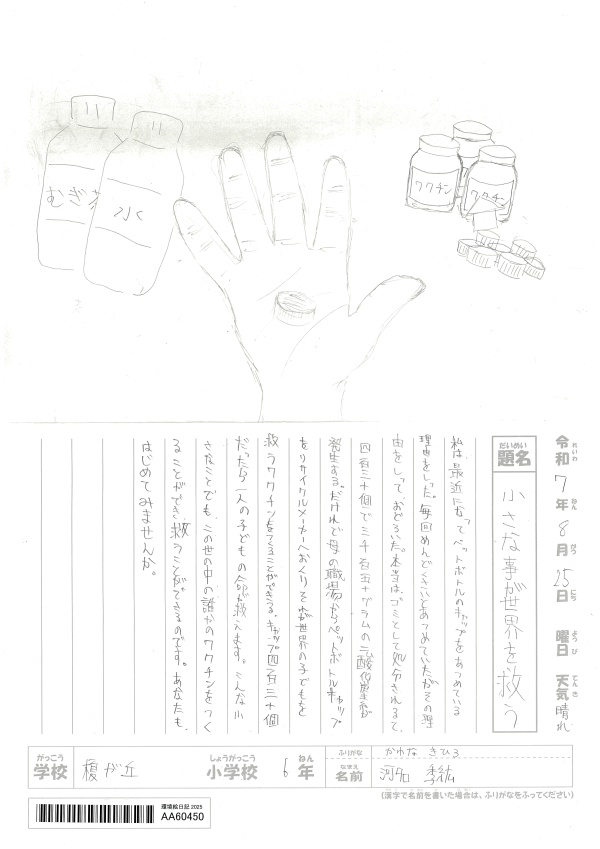 むぎ茶
水
ワクチン
ワクチン
令和7年8月25日 曜日 天気 晴れ
れいわ ねん がつ にち ようび てんき
だいめい
題名
小さな事が世界を救う
私は、最近になってペットボトルのキャップをあつめている
理由をしった。毎回めんどくさいとあつめていたがその理
由をしって、おどろいた。本当は、ゴミとして処分されるて、
四百三十個で三千百五十グラムの二酸化炭素が
発生する。だけれど母の職場からペットボトルキャップ
をリサイクルメーカーへおくりそれが世界の子どもを
救うワクチンをつくることができる。キャップ四百三十個
だったら一人の子どもの命が救えます。こんな小
さなことでも、この世の中の誰かのワクチンをつく
ることができ、救うことができるのです。あなたも、
はじめてみませんか。
がっこう しょうがっこう ねん
学校 榎が丘 小学校 6年
ふりがな かわな きひろ
なまえ
名前 河名 季紘
(漢字で名前を書いた場合は、ふりがなをふってください)
環境絵日記 2025
AA60450